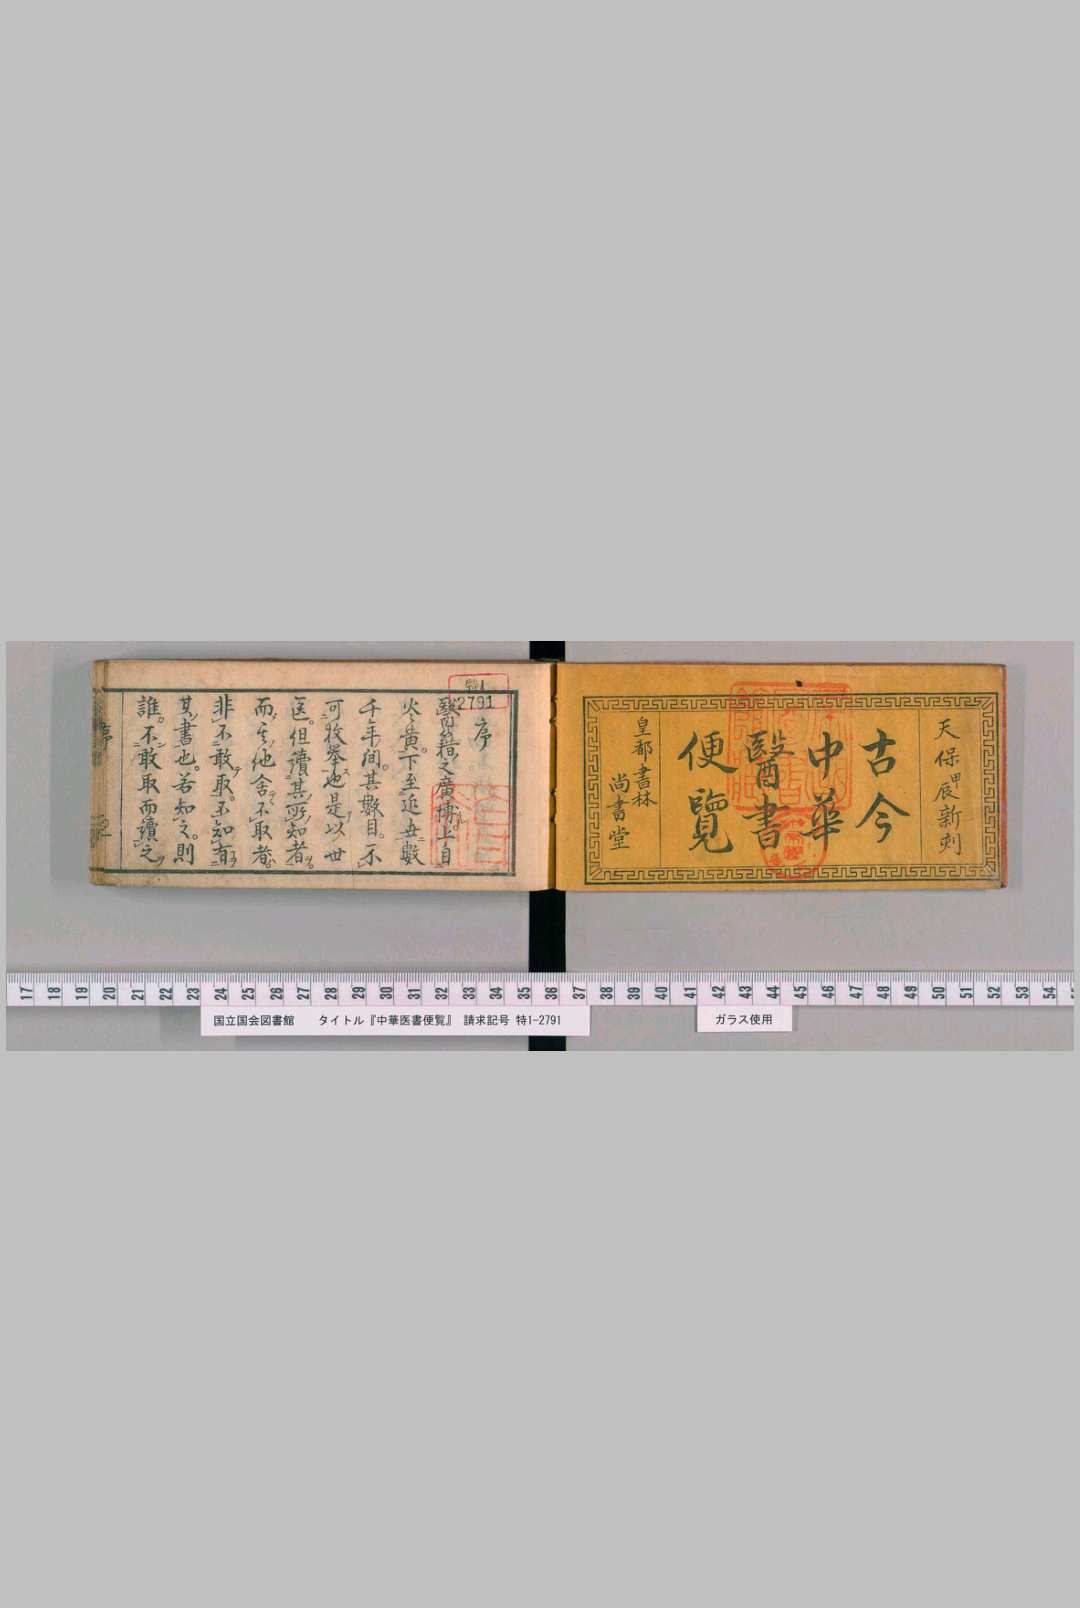 天保甲辰新刻
古今
中華
醫書
便覽
皇都書林
尚書堂
特1
2791
序
醫籍之廣博上自
火黃下至近世數
千年間其數目不
可枚舉也是以世
医但讀其所知者
而其他舍不取者
非不敢取不知有
其書也若知之則
誰不敢取而讀之
序
17 18 19 20 21 22 23 24 25 26 27 28 29 30 31 32 33 34 35 36 37 38 39 40 41 42 43 44 45 46 47 48 49 50 51 52 53 54
国立国会図書館 タイトル『中華医書便覧』 請求記号 特1-2791
ガラス使用